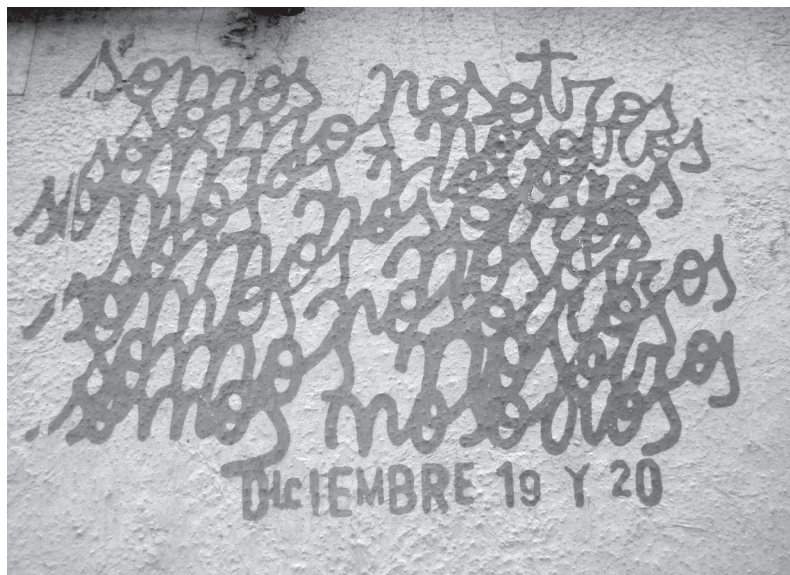 somos nosotros
somos nosotros
somos nosotros
somos nosotros
somos nosotros
somos nosotros
somos nosotros
DICIEMBRE 19 Y 20